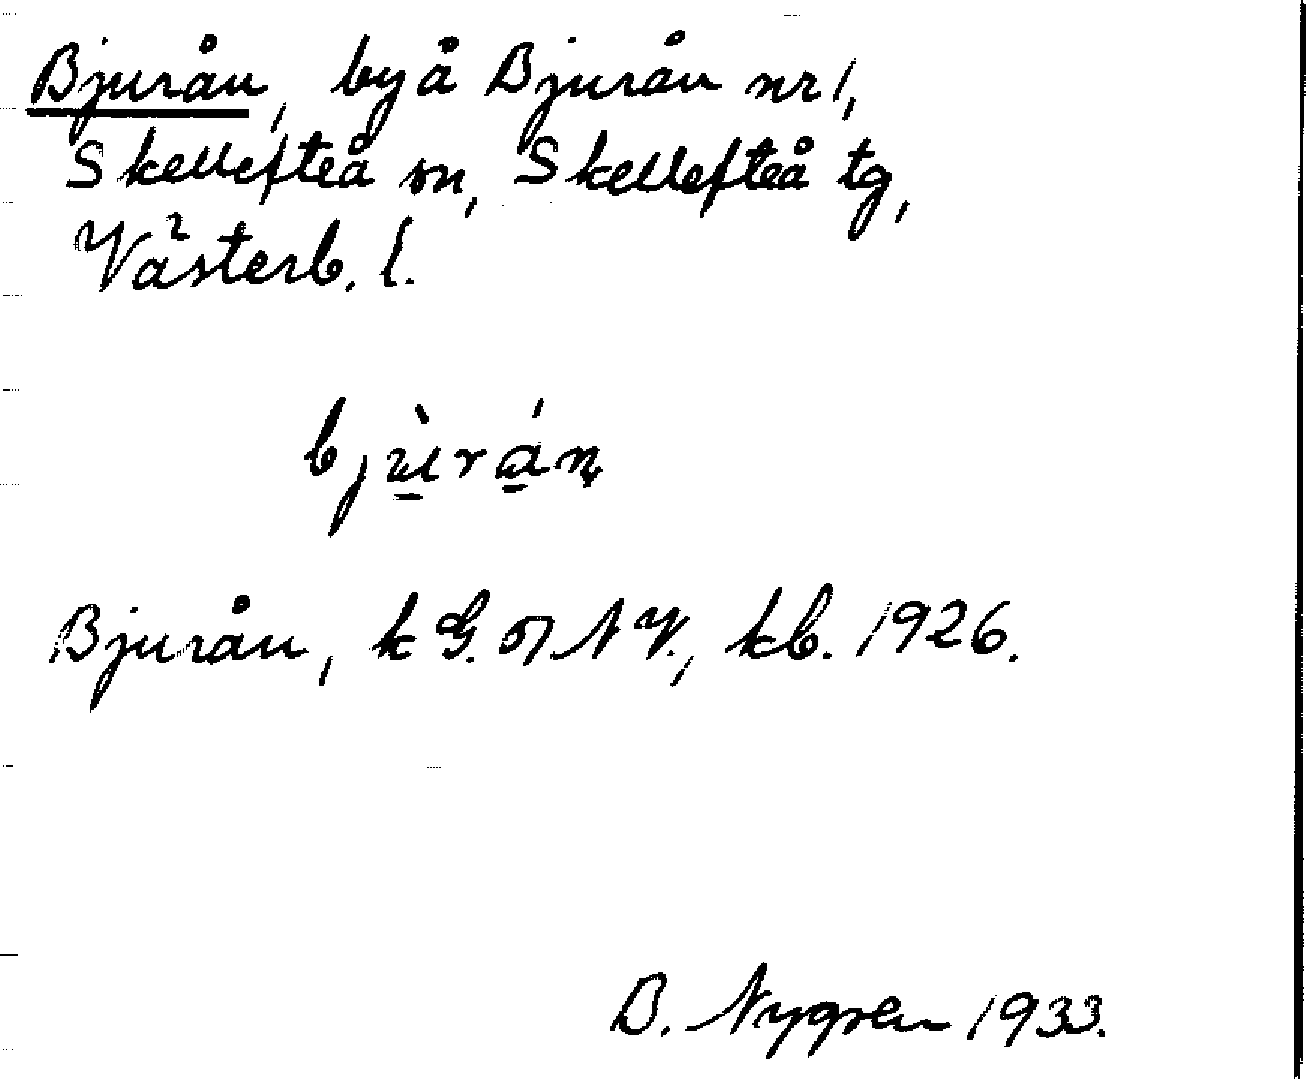 Bjurån, by å Bjurån nr 1,
Skellefteå sn, Skellefteå tg,
Västerb. l.
bjùrán
Bjurån, k G. o N V., kb. 1926.
B. Nygren 1933.